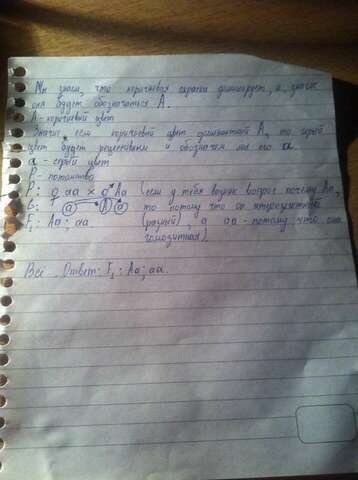 Мы знаем, что коричневая окраска доминирует, а значит
она будет обозначаться А.
А- коричневый цвет
Значит, если коричневый цвет доминантный А, то серый
цвет будет рецессивным и обозначим мы его а.
а - серый цвет
Р - потомство
Р: ♀ аа × ♂ Аа (если у тебя возник вопрос почему Аа,
G: а А а то потому что он гетерозиготный
F₁: Аа; аа. (разный), а аа - потому что она
гомозиготная).
Всё. Ответ: F₁: Аа; аа.